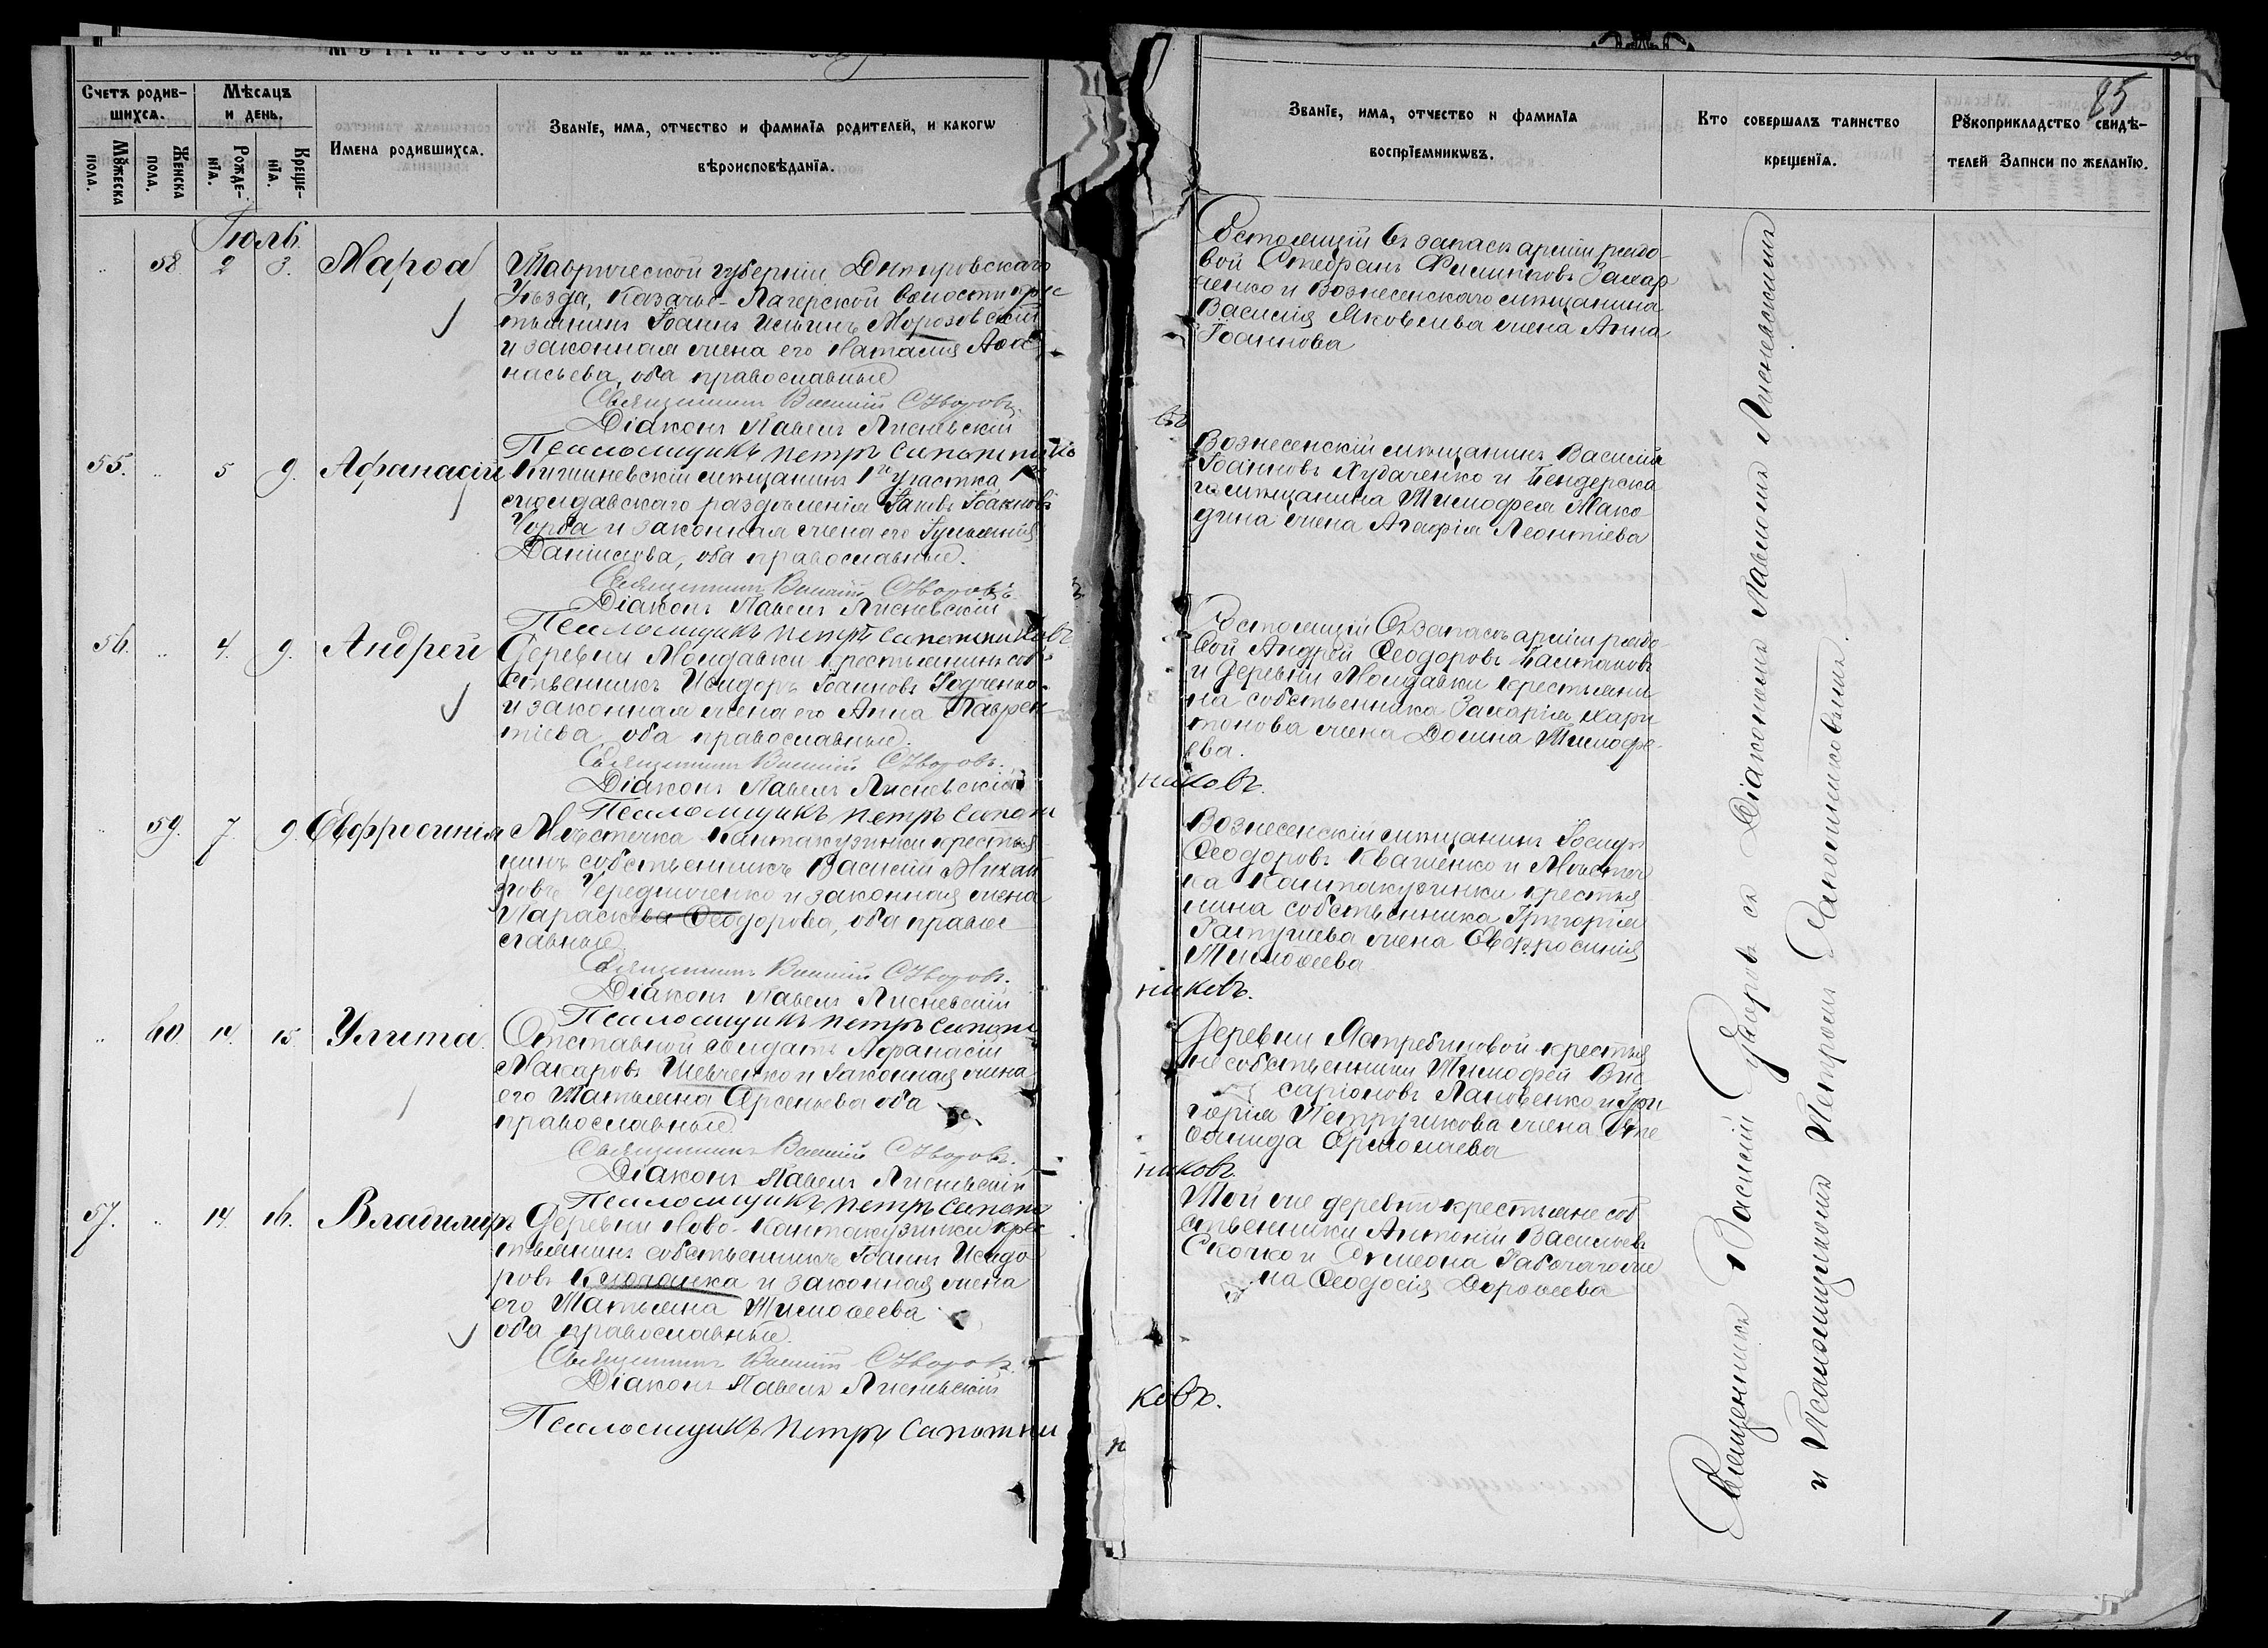 Счетъ родив-
шихся.
Мѣсяцъ
и день.
Мужеска
пола.
Женска
пола.
Рожде-
нія.
Креще-
нія.
Имена родившихся.
Званіе, имя, отчество и фамилія родителей, и какогѡ
вѣроисповѣданія.
Іюль.
58. 2 3. Марѳа
Таврической губерніи Днѣпровскаго
Уѣзда, Казачье-Лагерской волости крес
тьянинъ Іоаннъ Ильинъ Морозовскій
и законная жена его Наталія Аѳа
насьева, оба православные
Священникъ Василій
Діаконъ Павелъ Лисневскій
Псаломщикъ Петръ Сапожниковъ
55. 5 9. Афанасій
Кишиневскій мѣщанинъ 1го участка
молдавскаго раздѣленія Іаковъ Іоанновъ
Чорба и законная жена его Іуліанія
Даніилова, оба православные.
Священникъ Василій
Діаконъ Павелъ Лисневскій
Псаломщикъ Петръ Сапожниковъ
56. 4. 9. Андрей
Деревни Молдавки крестьянинъ соб
ственникъ Исидоръ Іоанновъ
и законная жена его Анна Лаврен
тіева, оба православные.
Священникъ Василій
Діаконъ Павелъ Лисневскій
Псаломщикъ Петръ Сапож
никовъ.
59. 7. 9. Евфросинія
Мѣстечка Кантакузинки крестья
нинъ собственникъ Василій Михай
ловъ Чередниченко и законная жена
Параскева Ѳеодорова, оба право
славные.
Священникъ Василій
Діаконъ Павелъ Лисневскій
Псаломщикъ Петръ Сапож
никовъ.
60 14. 15 Улита.
Отставной солдатъ Афанасій
Макаровъ Шевченко и законная жена
его Татьяна Арсеньева оба
православные
Священникъ Василій
Діаконъ Павелъ Лисневскій
Псаломщикъ Петръ Сапож
никовъ.
57. 14. 16. Владиміръ
Деревни Ново-Кантакузинки крес
тьянинъ собственникъ Іоаннъ Исидо
ровъ и законная жена
его Татьяна Тимоѳеева
оба православные.
Священникъ Василій
Діаконъ Павелъ Лисневскій
Псаломщикъ Петръ Сапожни
ковъ.
85
Званіе, имя, отчество и фамилія
воспріемникѡвъ.
Кто совершалъ таинство
крещенія.
Рукоприкладство свидѣ-
телей записи по желанію.
Состоящій въ запасѣ арміи рядо-
вой Стефанъ Филиповъ Захар
ченко и Вознесенскаго мѣщанина
Василія Яковлева жена Анна
Іоаннова
Вознесенскій мѣщанинъ Василій
Іоанновъ Худаченко и Бендерска
го мѣщанина Тимофея Мако
дина жена Агафія Леонтіева
Состоящій въ запасѣ арміи рядо-
вой Андрей Ѳеодоровъ
и деревни Молдавки крестьяни
на собственника Захарія Хари
тонова жена Домна Тимофе-
ева.
Вознесенскій мѣщанинъ
Ѳеодоровъ Квашенко и Мѣстеч
ка Кантакузинки крестья
нина собственника Григорія
жена Евфросинія
Тимоѳеева
Деревни Ястребиновой крестья
не собственники Тимофей Вис
саріоновъ Лановенко и Гри
горія Петручикова жена Сте
ѳанида Ермолаева
Той же деревни крестьяне соб
ственники Антоній Васильевъ
Скочко и Симеона Рабочаго же
на Ѳеодосія Дороѳеева
Священникъ Василій съ Діакономъ Павломъ Лисневскимъ
и Псаломщикомъ Петромъ Сапожниковымъ.